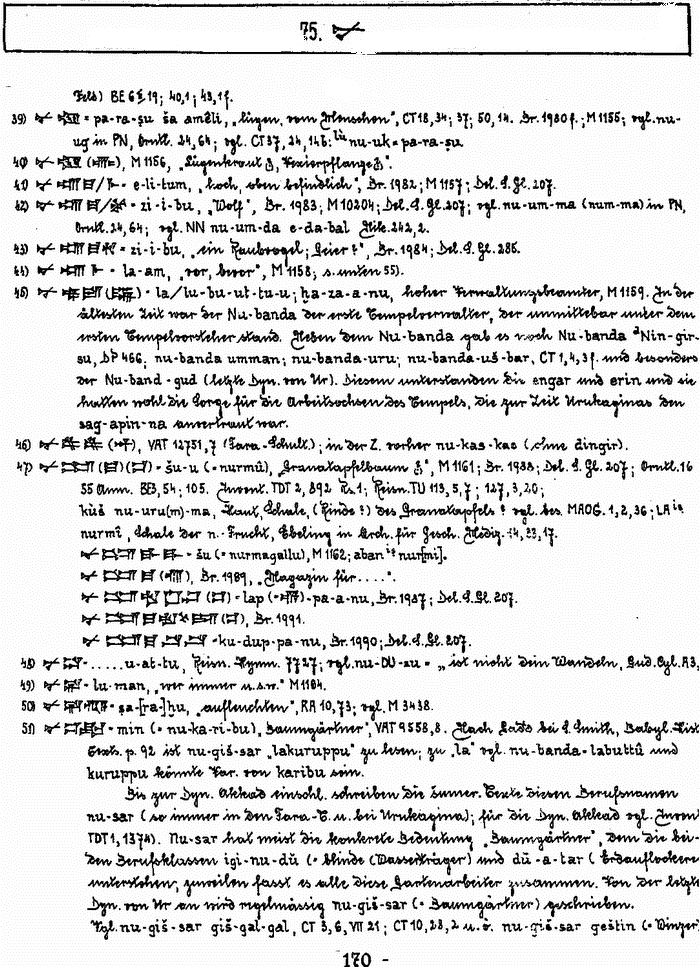 75.
Feld) BE 6 19; 40,1; 43,1f.
39) = pa-ra-ṣu ša amêli, „lügen, vom Menschen", CT 18, 34; 37; 50, 14. Br. 1980 f.; M 1155; vgl. nu-
ug in PN, Orntl. 24, 64; vgl. CT 37, 24, 14b: lú nu-uk = pa-ra-ṣu.
40) M 1156,
41) = e-li-tum, „hoch, oben befindlich", Br. 1982; M 1157; Del. S. Gl. 207.
42) = zi-i-bu, „Wolf", Br. 1983; M 10204; Del. S. Gl. 207; vgl. nu-um-ma (num-ma) in PN,
Orntl. 24, 64; vgl. NN nu-um-da e-da-bal Nik. 242, 2.
43) = zi-i-bu, „ein Raubvogel; Geier?", Br. 1984; Del. S. Gl. 285.
44) = la-am, „vor, bevor", M 1158; s. unten 55).
45) = la/lu-bu-ut-tu-u; ḫa-za-a-nu, hoher Verwaltungsbeamter, M 1159. In der
ältesten Zeit war der Nu-banda der erste Tempelverwalter, der unmittebar unter dem
ersten Tempelvorsteher stand. Neben dem Nu-banda gab es noch Nu-banda dNin-gir-
su, DP 466; nu-banda umman; nu-banda-uru; nu-banda-uš-bar, CT 1, 4, 3f. und besonders
der Nu-band-gud (letzte Dyn. von Ur). Diesem unterstanden die engar und erin und sie
hatten wohl die Sorge für die Arbeitsochsen des Tempels, die zur Zeit Urukaginas den
sag-apin-na anvertraut war.
46) VAT 12751, 7 (Fara-Schult.); in der Z. vorher nu-kas-kas (ohne dingir).
47) = šu-u (= nurmû), „Granatapfelbaum", M 1161; Br. 1988; Del. S. Gl. 207; Orntl. 16
55 Anm. 54; 105. Invent. TDT 2, 892 Rs. 1; Reisn. TU 113, 5, 7; 127, 3, 20;
kùš nu-uru(m)-ma, Haut, Schale, (Rinde?) des Granatapfels? vgl. bes. MAOG. 1, 2, 36; LA iṣ
nurmî, Schale der n.-Frucht, Ebeling in Arch. für Gesch. Mediz. 14, 23, 17.
= šu (= nurmagallu), M 1162; aban iṣ nur[mi].
Br. 1989, „Magazin für....".
= lap -pa-a-nu, Br. 1987; Del. S. Gl. 207.
Br. 1991.
= ku-dup-pa-nu, Br. 1990; Del. S. Gl. 207.
48) = .....u-at-tu, Reisn. Hymn. 77 27; vgl. nu-DU-zu = „ist nicht dein Wandeln, Gud. Cyl. A 3,
49) = lu-man, „wer immer u.s.w." M 1164.
50) = ṣa-[ra-]ḫu, „aufleuchten", RA 10, 73; vgl. M 3438.
51) = min (= nu-ka-ri-bu), „Baumgärtner", VAT 9558, 8. Nach bei S. Smith, Babyl. Hist.
Texts. p. 92 ist nu-giš-sar „lakuruppu" zu lesen; zu „la" vgl. nu-banda = labuttû und
kuruppu könnte Var. von karibu sein.
Bis zur Dyn. Akkad einschl. schreiben die sumer. Texte diesen Berufsnamen
nu-sar (so immer in den Fara-T. u. bei Urukagina); für die Dyn. Akkad vgl. Invent
TDT 1, 1374). Nu-sar hat meist die konkrete Bedeutung „Baumgärtner", dem die bei-
den Berufsklassen igi-nu-dŭ (= blinde (Wasserträger) und dŭ-a-tar (Erdauflockere
unterstehen; zuweilen fasst es alle diese Gartenarbeiter zusammen. Von der letzte
Dyn. von Ur an wird regelmässig nu-giš-sar (= Baumgärtner) geschrieben.
Vgl. nu-giš-sar giš-gal-gal, CT 3, 6, VII 21; CT 10, 28, 2 u. ö. nu-giš-sar geštin (= Winzer)
170 -